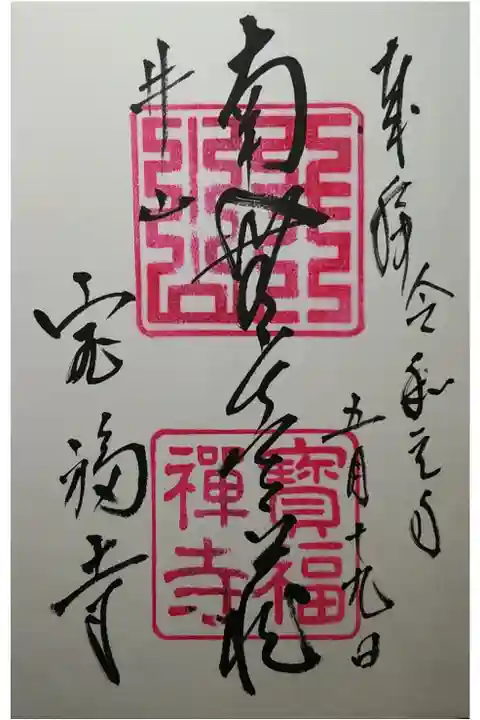 奉拝 令和元年
五月十九日
南無虚空蔵
井山
宝福寺
寶福
禪寺